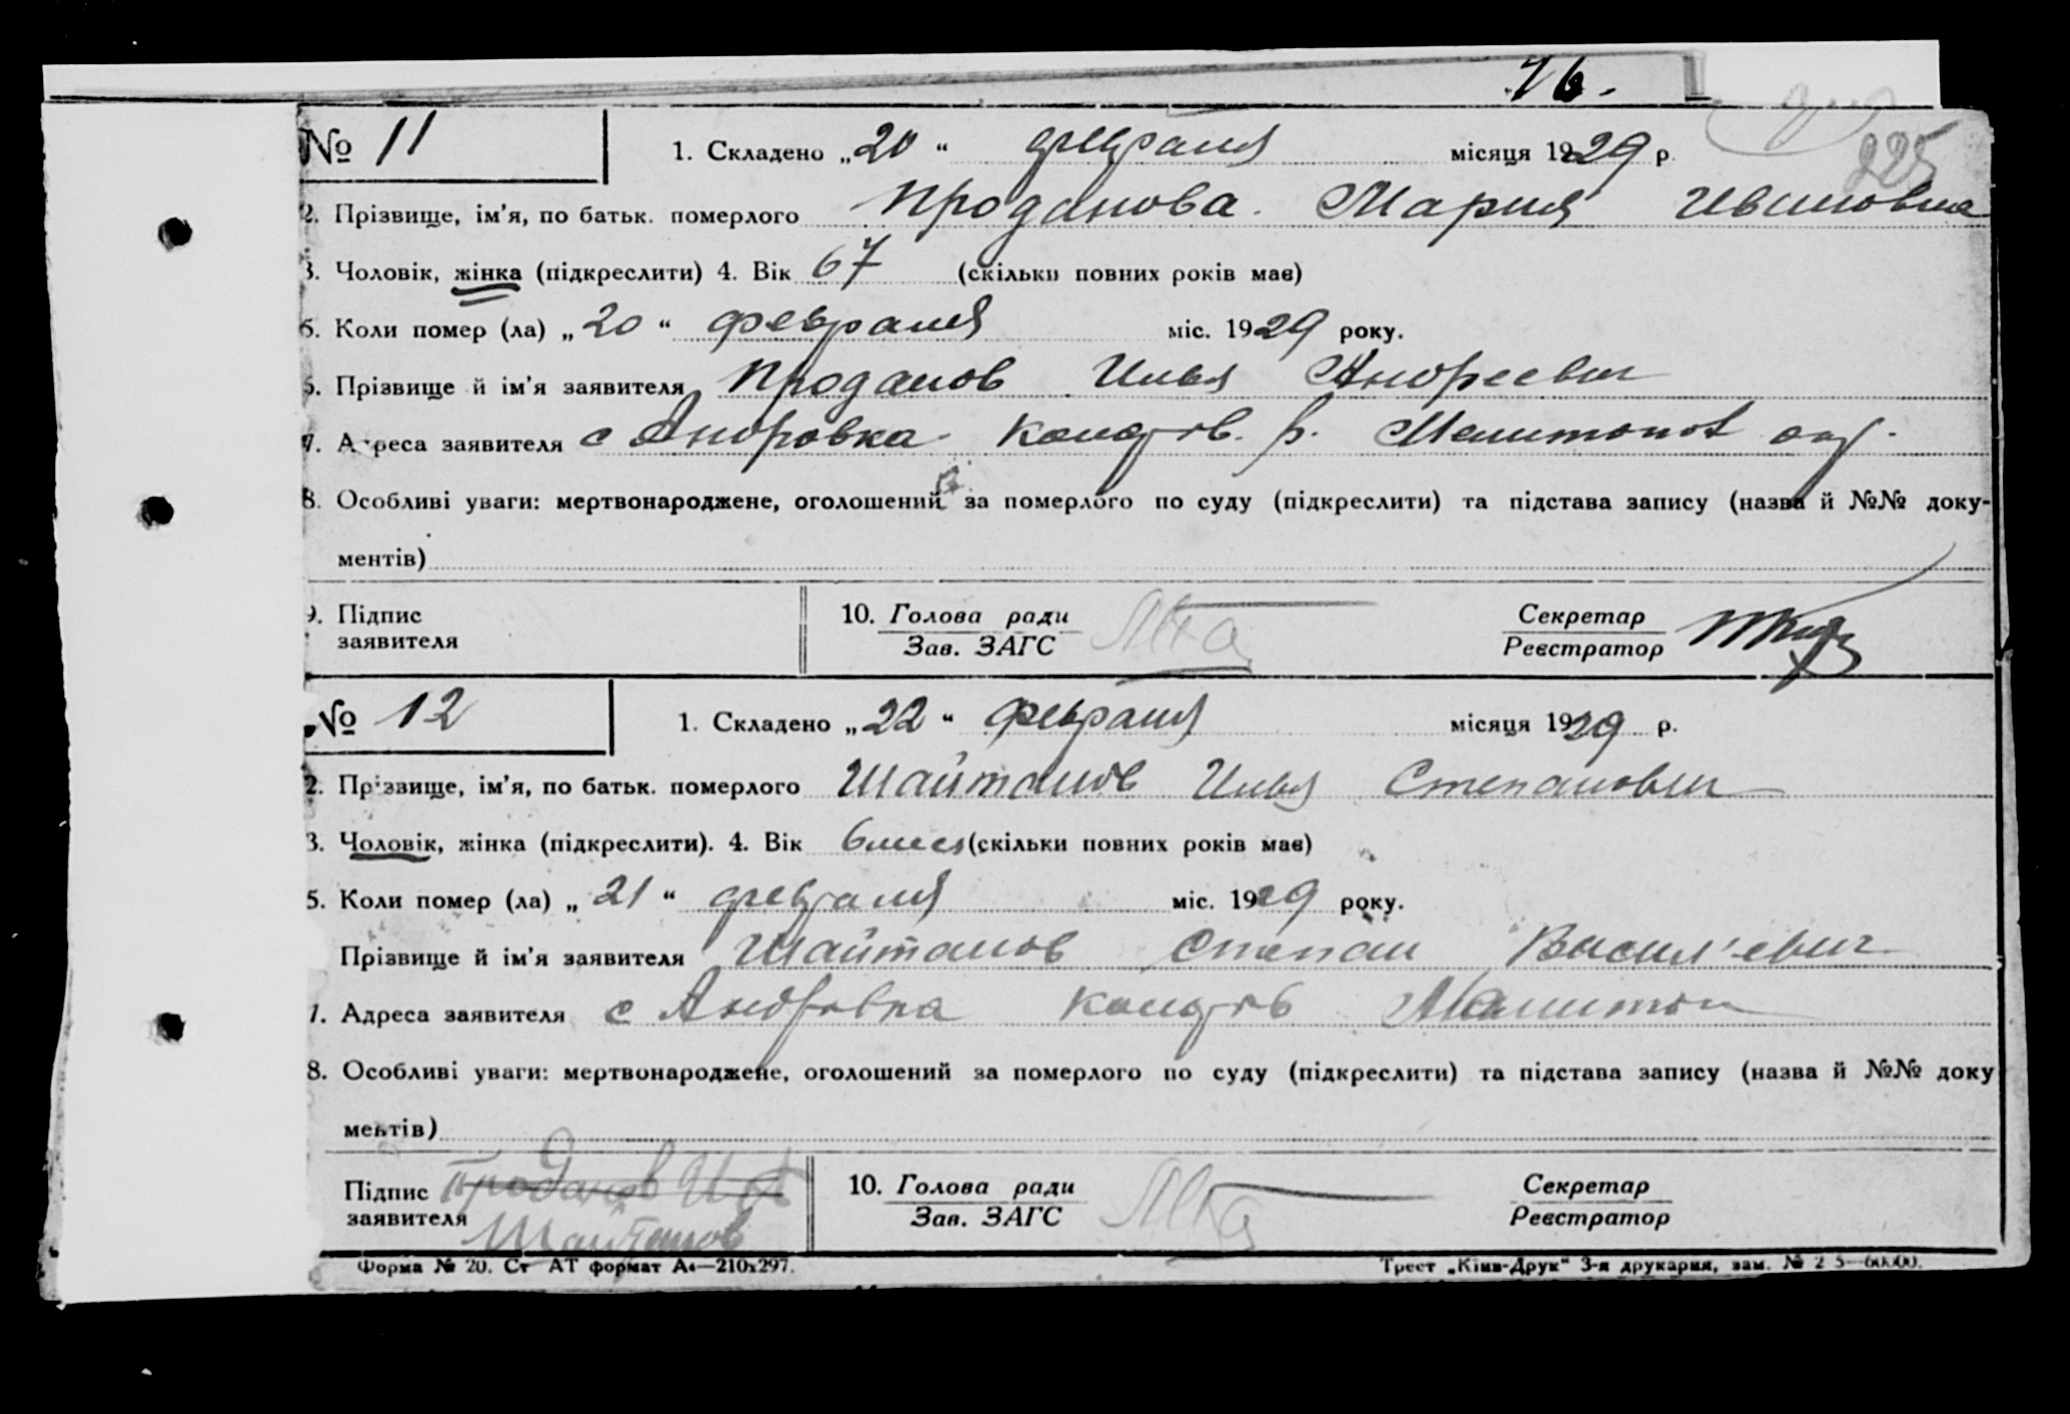 76.
225
№ 11 1. Складено „20“ февраля місяця 1929 р.
2. Прізвище, ім'я, по батьк. померлого Проданова Мария Ивановна
3. Чоловік, жінка (підкреслити) 4. Вік 67 (скільки повних років має)
5. Коли помер (ла) „20“ февраля міс. 1929 року.
6. Прізвище й ім'я заявителя Проданов Илья Андреевич
7. Адреса заявителя с Андровка р. Мелитопол окр.
8. Особливі уваги: мертвонароджене, оголошений за померлого по суду (підкреслити) та підстава запису (назва й №№ доку-
ментів)
9. Підпис заявителя 10. Голова ради Зав. ЗАГС Секретар Реєстратор
№ 12 1. Складено „22“ февраля місяця 1929 р.
2. Прізвище, ім'я, по батьк. померлого Шайтанов Илья Степанович
3. Чоловік, жінка (підкреслити). 4. Вік 6 мес (скільки повних років має)
5. Коли помер (ла) „21“ февраля міс. 1929 року.
Прізвище й ім'я заявителя Шайтанов Степан Васил'евич
7. Адреса заявителя с Андровка Мелитоп
8. Особливі уваги: мертвонароджене, оголошений за померлого по суду (підкреслити) та підстава запису (назва й №№ доку
ментів)
Підпис заявителя Проданов И А Шайтанов 10. Голова ради Зав. ЗАГС Секретар Реєстратор
Форма № 20. Ст АТ формат А4—210х297. Трест „Київ-Друк“ 3-я друкарня, зам. №